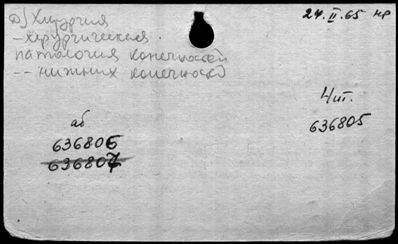 д) Хирургия
24.II.65 нр
– хирургическая.
патология конечностей
-- нижних конечностей
Чит.
636805
аб
636806
636807